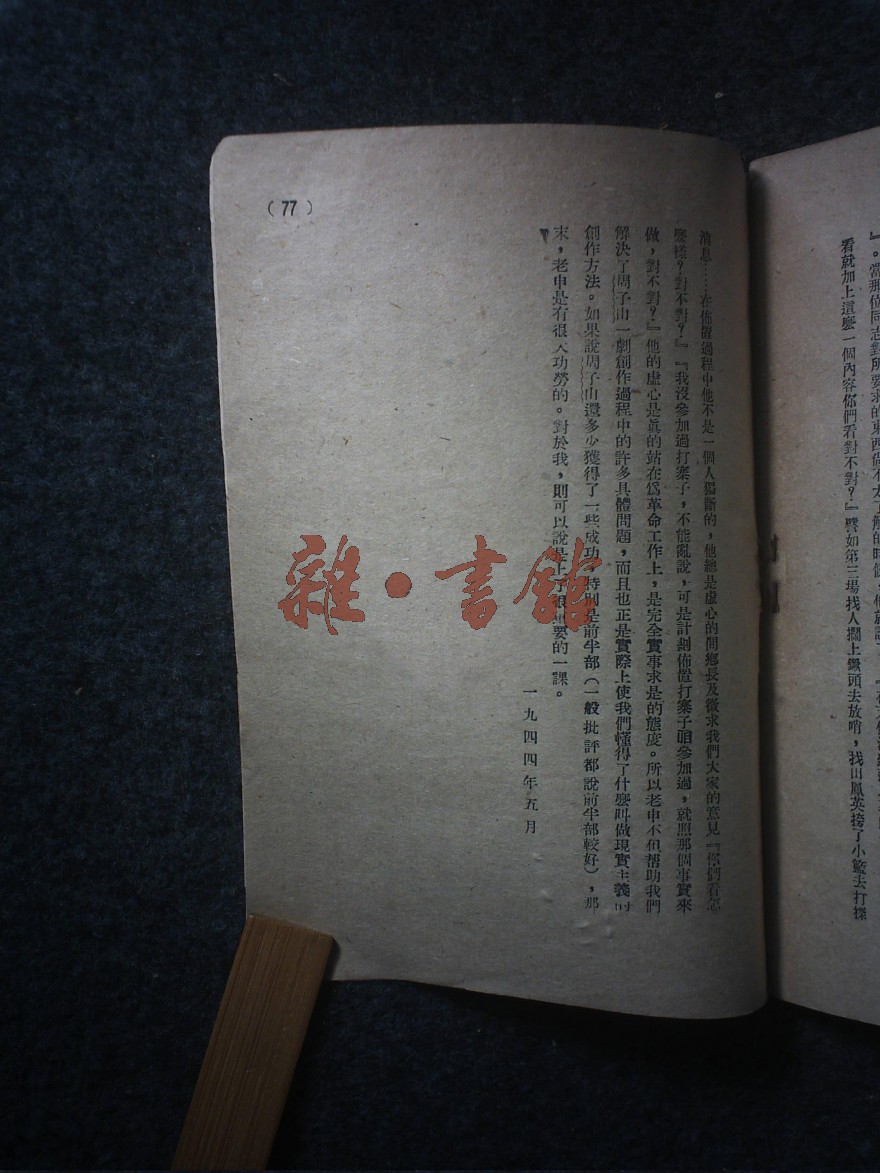 』。當那位同志對所要求的東西
看就加上這麼一個內容你們看對不對？』譬如第三場找人攔上鐝頭去放哨，找田鳳英挎了小籃去打探
消息……在佈置過程中他不是一個人獨斷的，他總是虛心的問鄉長及徵求我們大家的意見『你們看怎
麼樣？對不對？』『我沒參加過打寨子，不能亂說，可是計劃佈置打寨子咱參加過，就照那個事實來
做，對不對？』他的虛心是眞的站在爲革命工作上，是完全實事求是的態度。所以老申不但幫助我們
解決了周子山一劇創作過程中的許多具體問題，而且也正是實際上使我們懂得了什麼叫做現實主義的
創作方法。如果說周子山還多少獲得了一些成功，特別是前半部（一般批評都說前半部較好），那
末，老申是有很大功勞的。對於我，則可以說是上了很重要的一課。
一九四四年五月
（77）
雜·書館